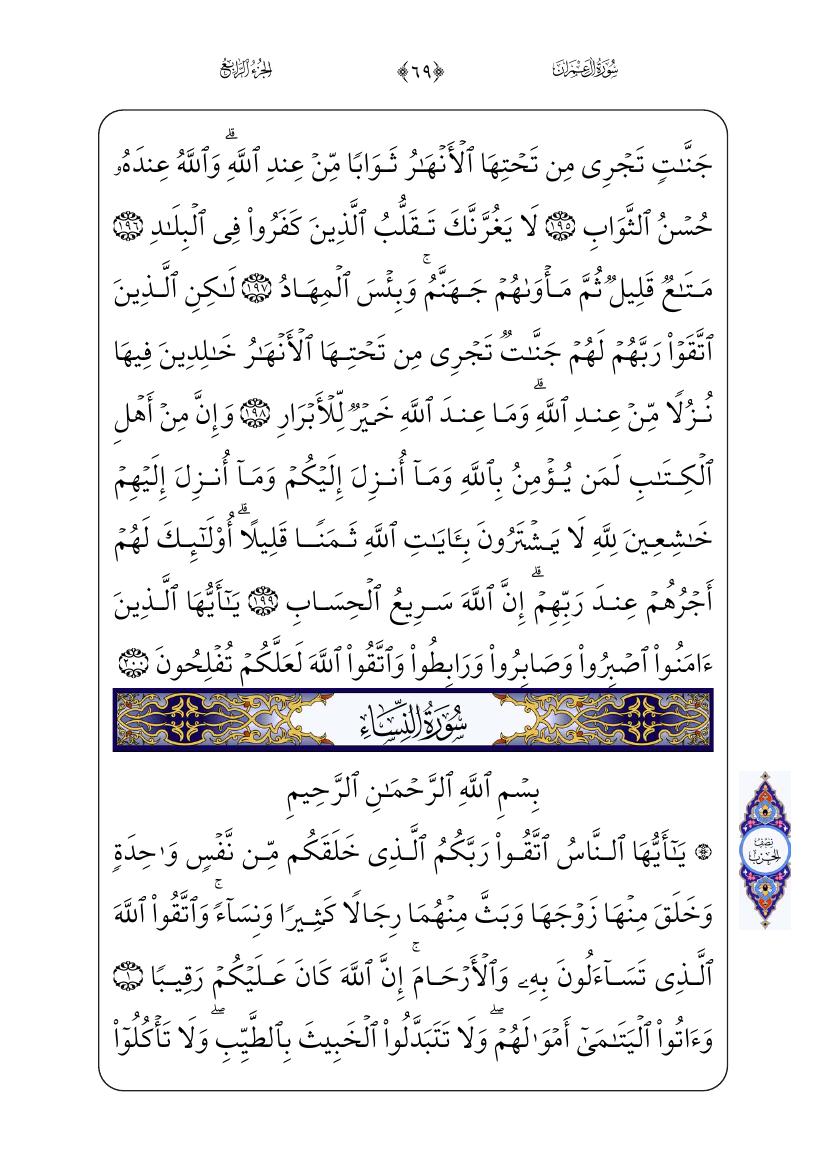 سُورَةُ آلِ عِمۡرَانَ ﴿٦٩﴾ الجُزۡءُ الرَّابِعُ
جَنَّٰتٖ تَجۡرِي مِن تَحۡتِهَا ٱلۡأَنۡهَٰرُ ثَوَابٗا مِّنۡ عِندِ ٱللَّهِۚ وَٱللَّهُ عِندَهُۥ
حُسۡنُ ٱلثَّوَابِ ١٩٥ لَا يَغُرَّنَّكَ تَقَلُّبُ ٱلَّذِينَ كَفَرُواْ فِي ٱلۡبِلَٰدِ ١٩٦
مَتَٰعٞ قَلِيلٞ ثُمَّ مَأۡوَىٰهُمۡ جَهَنَّمُۚ وَبِئۡسَ ٱلۡمِهَادُ ١٩٧ لَٰكِنِ ٱلَّذِينَ
ٱتَّقَوۡاْ رَبَّهُمۡ لَهُمۡ جَنَّٰتٞ تَجۡرِي مِن تَحۡتِهَا ٱلۡأَنۡهَٰرُ خَٰلِدِينَ فِيهَا
نُزُلٗا مِّنۡ عِندِ ٱللَّهِۗ وَمَا عِندَ ٱللَّهِ خَيۡرٞ لِّلۡأَبۡرَارِ ١٩٨ وَإِنَّ مِنۡ أَهۡلِ
ٱلۡكِتَٰبِ لَمَن يُؤۡمِنُ بِٱللَّهِ وَمَآ أُنزِلَ إِلَيۡكُمۡ وَمَآ أُنزِلَ إِلَيۡهِمۡ
خَٰشِعِينَ لِلَّهِ لَا يَشۡتَرُونَ بِـَٔايَٰتِ ٱللَّهِ ثَمَنٗا قَلِيلًاۗ أُوْلَٰٓئِكَ لَهُمۡ
أَجۡرُهُمۡ عِندَ رَبِّهِمۡۗ إِنَّ ٱللَّهَ سَرِيعُ ٱلۡحِسَابِ ١٩٩ يَٰٓأَيُّهَا ٱلَّذِينَ
ءَامَنُواْ ٱصۡبِرُواْ وَصَابِرُواْ وَرَابِطُواْ وَٱتَّقُواْ ٱللَّهَ لَعَلَّكُمۡ تُفۡلِحُونَ ٢٠٠
سُورَةُ النِّسَاءِ
بِسۡمِ ٱللَّهِ ٱلرَّحۡمَٰنِ ٱلرَّحِيمِ
۞ يَٰٓأَيُّهَا ٱلنَّاسُ ٱتَّقُواْ رَبَّكُمُ ٱلَّذِي خَلَقَكُم مِّن نَّفۡسٖ وَٰحِدَةٖ
نِصۡفُ
الحِزۡبِ
وَخَلَقَ مِنۡهَا زَوۡجَهَا وَبَثَّ مِنۡهُمَا رِجَالٗا كَثِيرٗا وَنِسَآءٗۚ وَٱتَّقُواْ ٱللَّهَ
ٱلَّذِي تَسَآءَلُونَ بِهِۦ وَٱلۡأَرۡحَامَۚ إِنَّ ٱللَّهَ كَانَ عَلَيۡكُمۡ رَقِيبٗا ١
وَءَاتُواْ ٱلۡيَتَٰمَىٰٓ أَمۡوَٰلَهُمۡۖ وَلَا تَتَبَدَّلُواْ ٱلۡخَبِيثَ بِٱلطَّيِّبِۖ وَلَا تَأۡكُلُوٓاْ